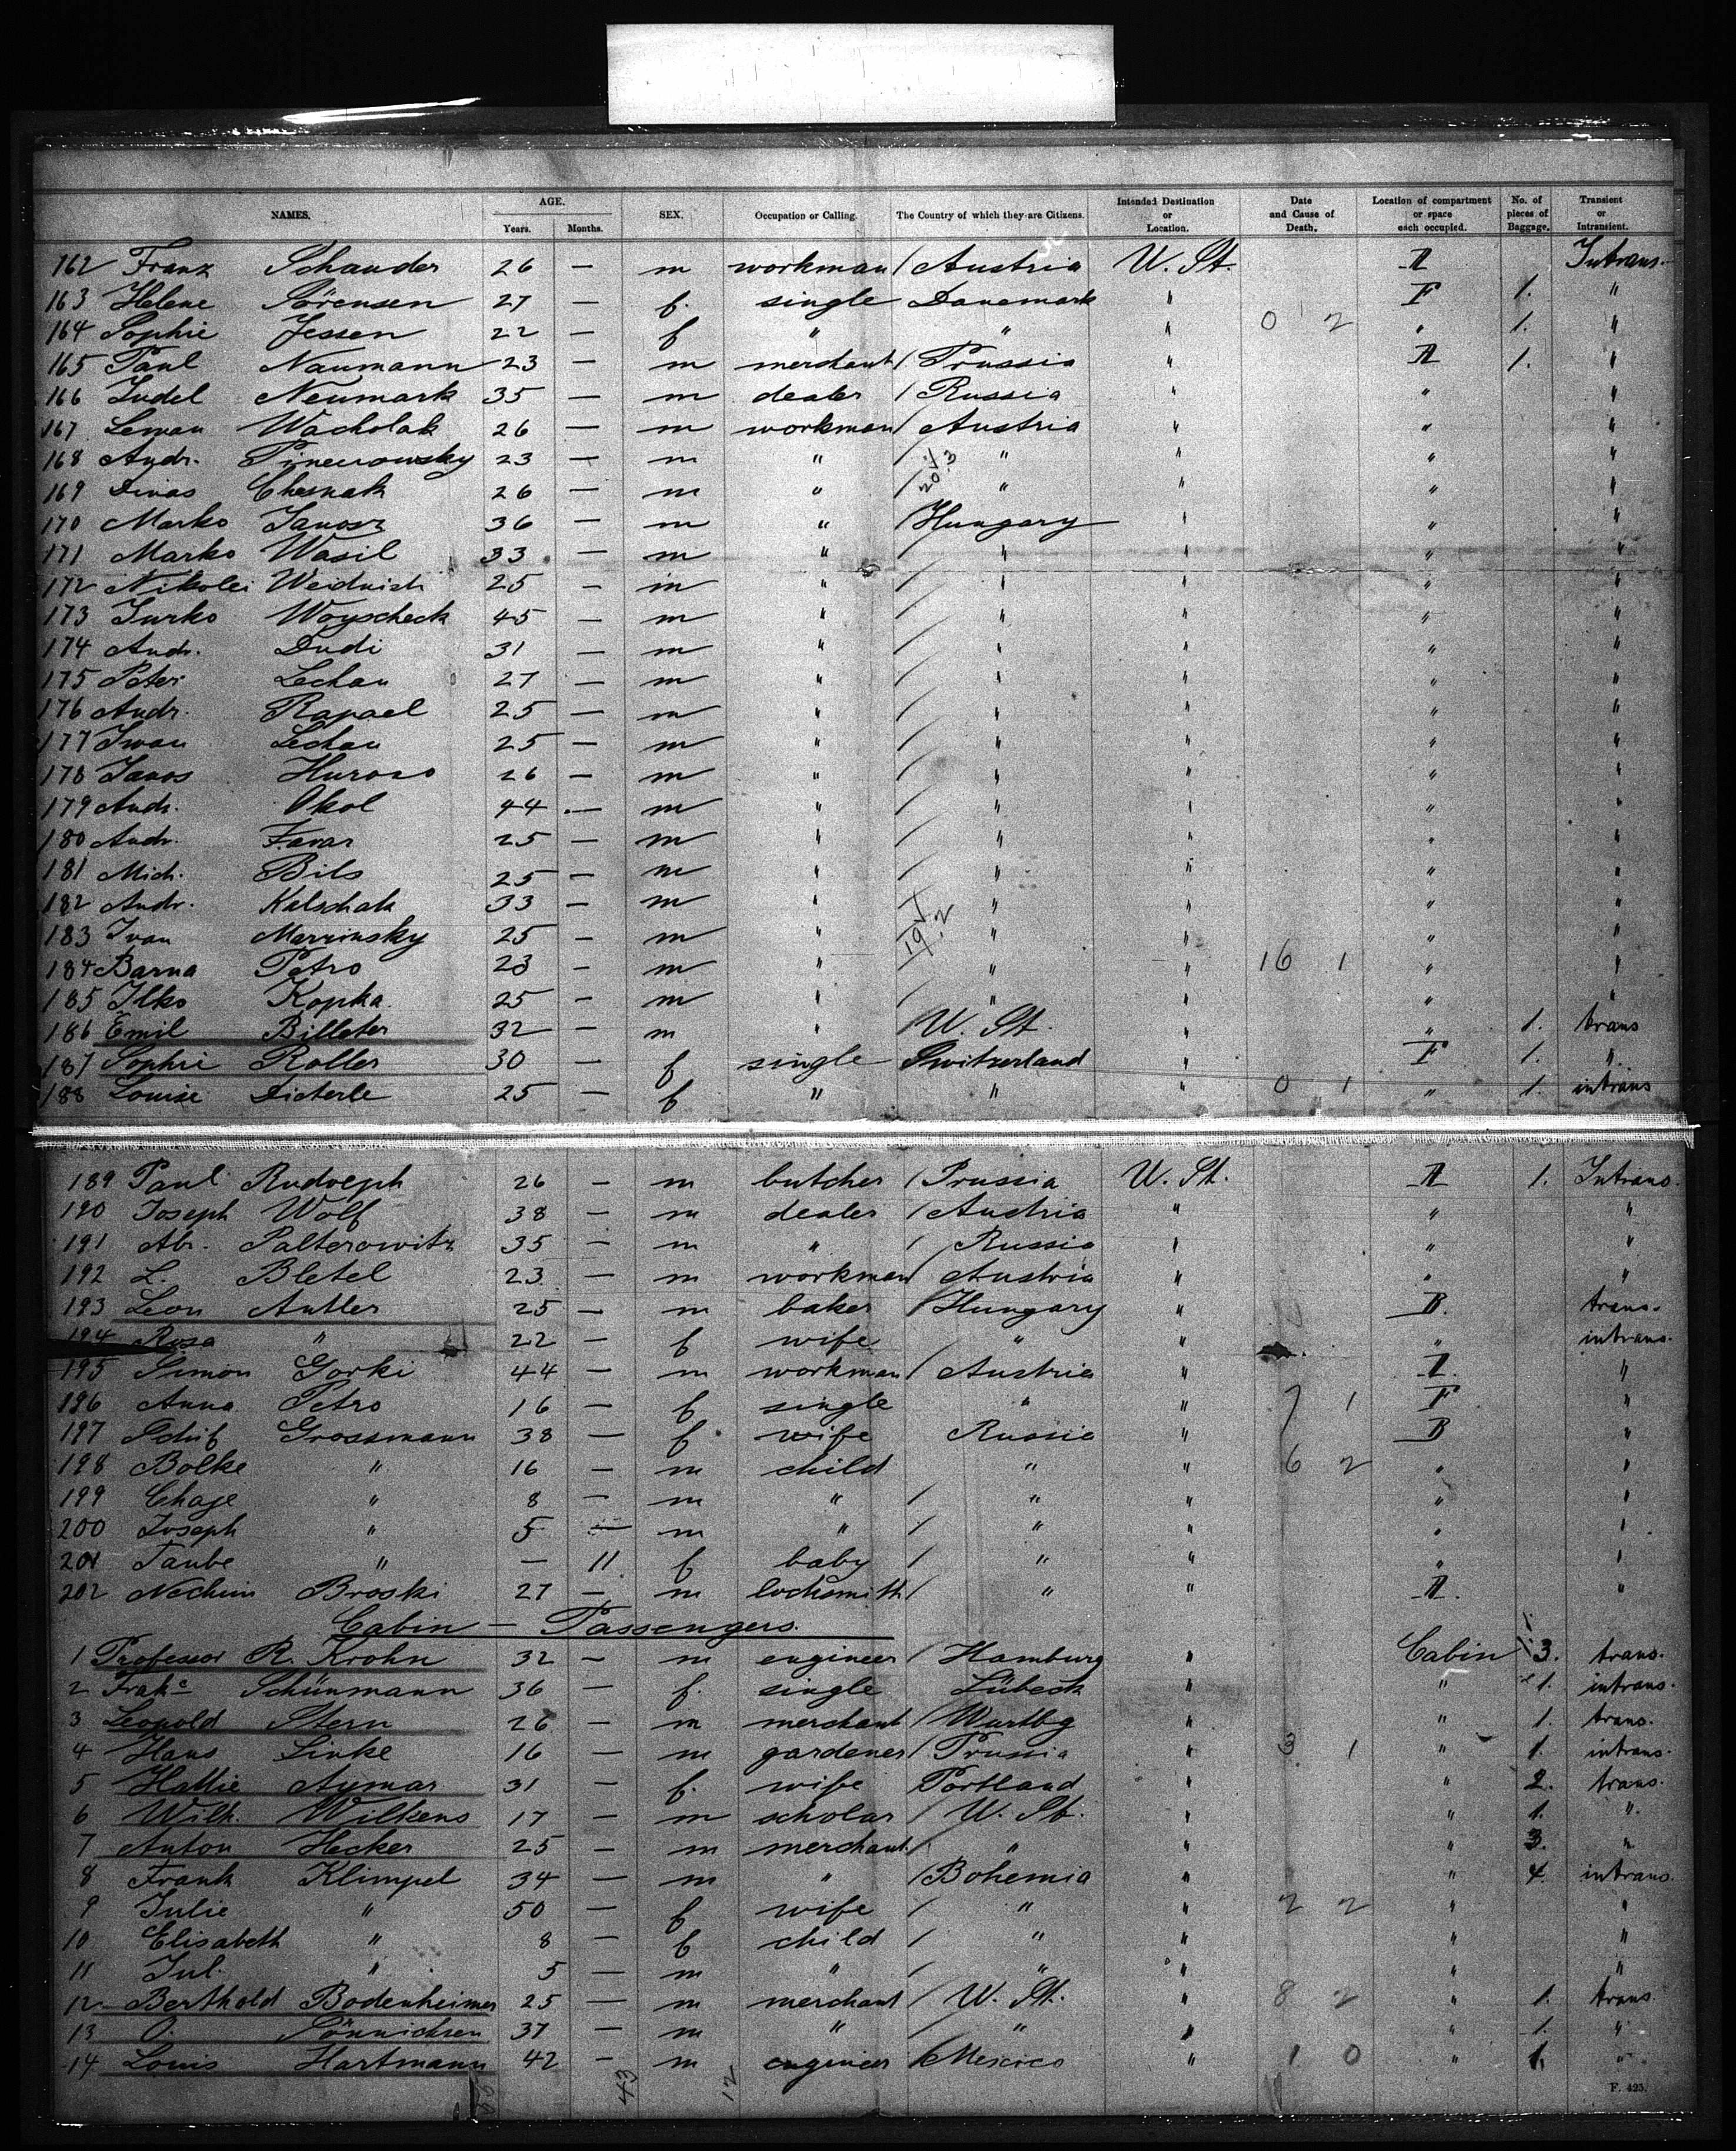 NAMES. AGE. Years. Months. SEX. Occupation or Calling. The Country of which they are Citizens. Intended Destination or Location. Date and Cause of Death. Location of compartment or space each occupied. No. of pieces of Baggage. Transient or Intransient.
162 Franz Schauder 26 — m workman / Austria U. St. A Intrans.
163 Helene Sörensen 27 — f. single Danemark " F 1. "
164 Sophie Jessen 22 — f " " " 0 2 " 1. "
165 Paul Naumann 23 — m merchant / Prussia " A 1. "
166 Judel Neumark 35 — m dealer / Russia " " "
167 Leman Wacholak 26 — m workman / Austria " " "
168 Andr. 23 — m " / " " " "
169 Chesnak 26 — m " / " " " "
170 Marko Janosz 36 — m " / Hungary " " "
171 Marko Wasil 33 — m " / " " " "
172 Nikolei 25 — m " / " " " "
173 Jurko Woyscheck 45 — m " / " " " "
174 Andr. Dudi 31 — m " / " " " "
175 Peter Lechan 27 — m " / " " " "
176 Andr. Rapael 25 — m " / " " " "
177 Iwan Lechan 25 — m " / " " " "
178 Janos 26 — m " / " " " "
179 Andr. Okol 44 — m " / " " " "
180 Andr. 25 — m " / " " " "
181 Mich. Bils 25 — m " / " " " "
182 Andr. Kelschak 33 — m " / " " " "
183 Ivan 25 — m " / " " " "
184 Barna Petro 23 — m " " " 16 1 " "
185 Ilko Kopka 25 — m " / " " " "
186 Emil Billeter 32 — m " U. St. " " 1. trans
187 Sophie Roller 30 — f single Switzerland " F 1. "
188 Louise Dieterle 25 — f " " " 0 1 " 1. intrans
189 Paul Rudolph 26 — m butcher / Prussia U. St. A 1. Intrans.
190 Joseph Wolf 38 — m dealer / Austria " " "
191 Abr. Palterowitz 35 — m " / Russia " " "
192 L. Bletel 23 — m workman / Austria " " "
193 Leon Antler 25 — m baker / Hungary " B. trans.
194 Rosa " 22 — f wife " " " intrans.
195 Simon Gorki 44 — m workman / Austria " A. "
196 Anna Petro 16 — f single " " 7 1 F "
197 Grossmann 38 — f wife Russia " B "
198 Bolke " 16 — m child " " 6 2 " "
199 Chaje " 8 — m " / " " " "
200 Joseph " 5 — m " / " " " "
201 Taube " — 11 f baby / " " " "
202 Nechim Broski 27 — m locksmith / " " A. "
Cabin — Passengers.
1 Professor R. Krohn 32 — m engineer / Hamburg " Cabin 3. trans.
2 Schünmann 36 — f. single Lübeck " " 1. intrans.
3 Leopold Stern 26 — m merchant / Wurtbg " " 1. trans.
4 Hans Linke 16 — m gardener / Prussia " 3 1 " 1. intrans.
5 Hattie Aymar 31 — f. wife Portland " " 2. trans.
6 Wilh. Wilkens 17 — m scholar / U. St. " " 1. "
7 Anton Hecker 25 — m merchant / " " " 3. "
8 Frank Klimpel 34 — m " / Bohemia " " 4. intrans.
9 Julie " 50 — f wife / " " 2 2 " "
10 Elisabeth " 8 — f child / " " " "
11 Jul. " 5 — m " / " " " "
12 Berthold Bodenheimer 25 — m merchant / U. St. " 8 2 " 1. trans.
13 O. Sönnichsen 37 — m " / " " " 1. "
14 Louis Hartmann 42 — m engineer / Mexico " 1 0 " 1. "
43 12
F. 425.